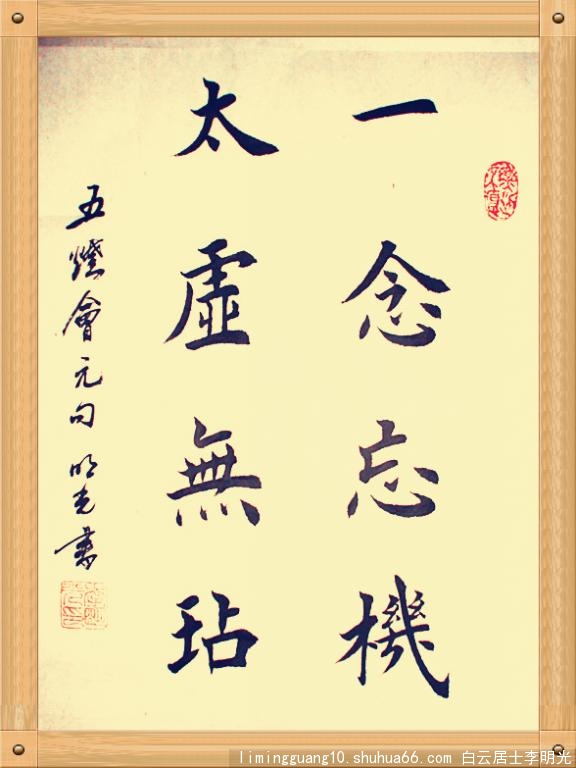 一念忘機
太虛無玷
五燈會元句 明光書
limingguang10.shuhua66.com 白云居士李明光